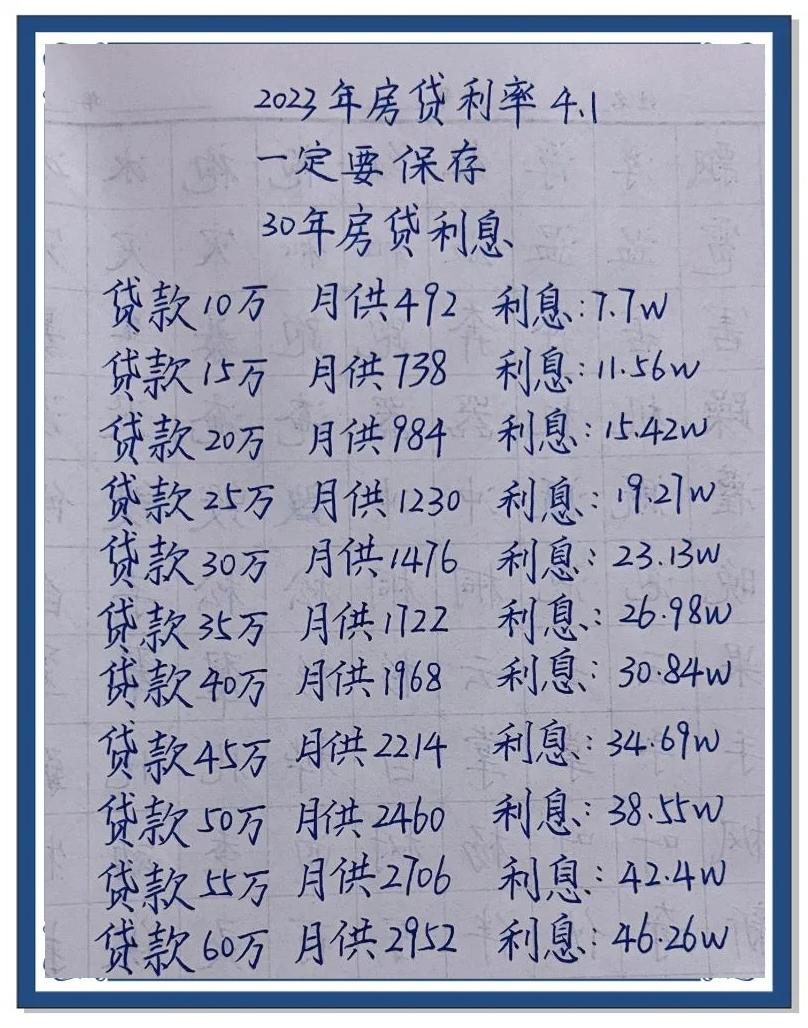 2023年房贷利率4.1
一定要保存
30年房贷利息
贷款10万 月供492 利息:7.7w
贷款15万 月供738 利息:11.56w
贷款20万 月供984 利息:15.42w
贷款25万 月供1230 利息:19.27w
贷款30万 月供1476 利息:23.13w
贷款35万 月供1722 利息:26.98w
贷款40万 月供1968 利息:30.84w
贷款45万 月供2214 利息:34.69w
贷款50万 月供2460 利息:38.55w
贷款55万 月供2706 利息:42.4w
贷款60万 月供2952 利息:46.26w